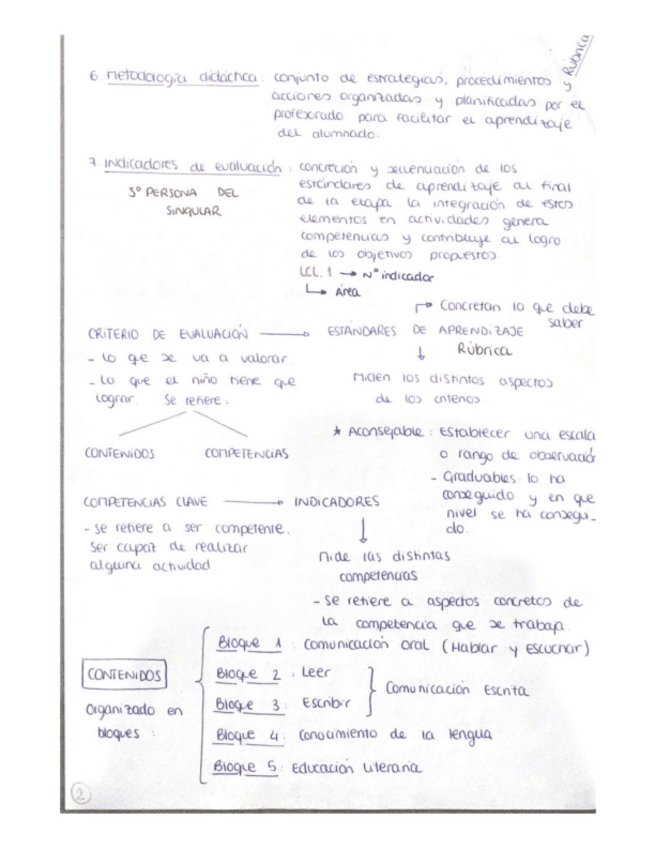 Rúbrica
6. Metodología didáctica: conjunto de estrategias, procedimientos y
acciones organizadas y planificadas por el
profesorado para facilitar el aprendizaje
del alumnado.
7. Indicadores de evaluación: concreción y secuenuación de los
3º PERSONA DEL
SINGULAR
estándares de aprendizaje al final
de la etapa. la integración de estos
elementos en actividades genera
competencias y contribuye al logro
de los objetivos propuestos.
LCL. 1 → Nº indicador
↳ Área
→ Concretan lo que debe
saber
CRITERIO DE EVALUACIÓN → ESTÁNDARES DE APRENDIZAJE
- lo qe se va a valorar.
↓ Rúbrica
- lo que el niño tiene que
lograr. Se refiere.
Miden los distintos aspectos
de los criterios
CONTENIDOS COMPETENCIAS
* Aconsejable: Establecer una escala
o rango de observación
- Graduables: lo ha
conseguido y en que
nivel se ha consegui-
do.
COMPETENCIAS CLAVE → INDICADORES
- se refiere a ser competente.
Ser capaz de realizar
alguna actividad
↓
Mide las distintas
competencias
- se refiere a aspectos concretos de
la competencia que se trabaja.
CONTENIDOS
Organizado en
bloques:
Bloque 1: Comunicación Oral (Hablar y escuchar)
Bloque 2: Leer
Bloque 3: Escribir
Comunicación Escrita
Bloque 4: Conocimiento de la lengua
Bloque 5: Educación literaria
2